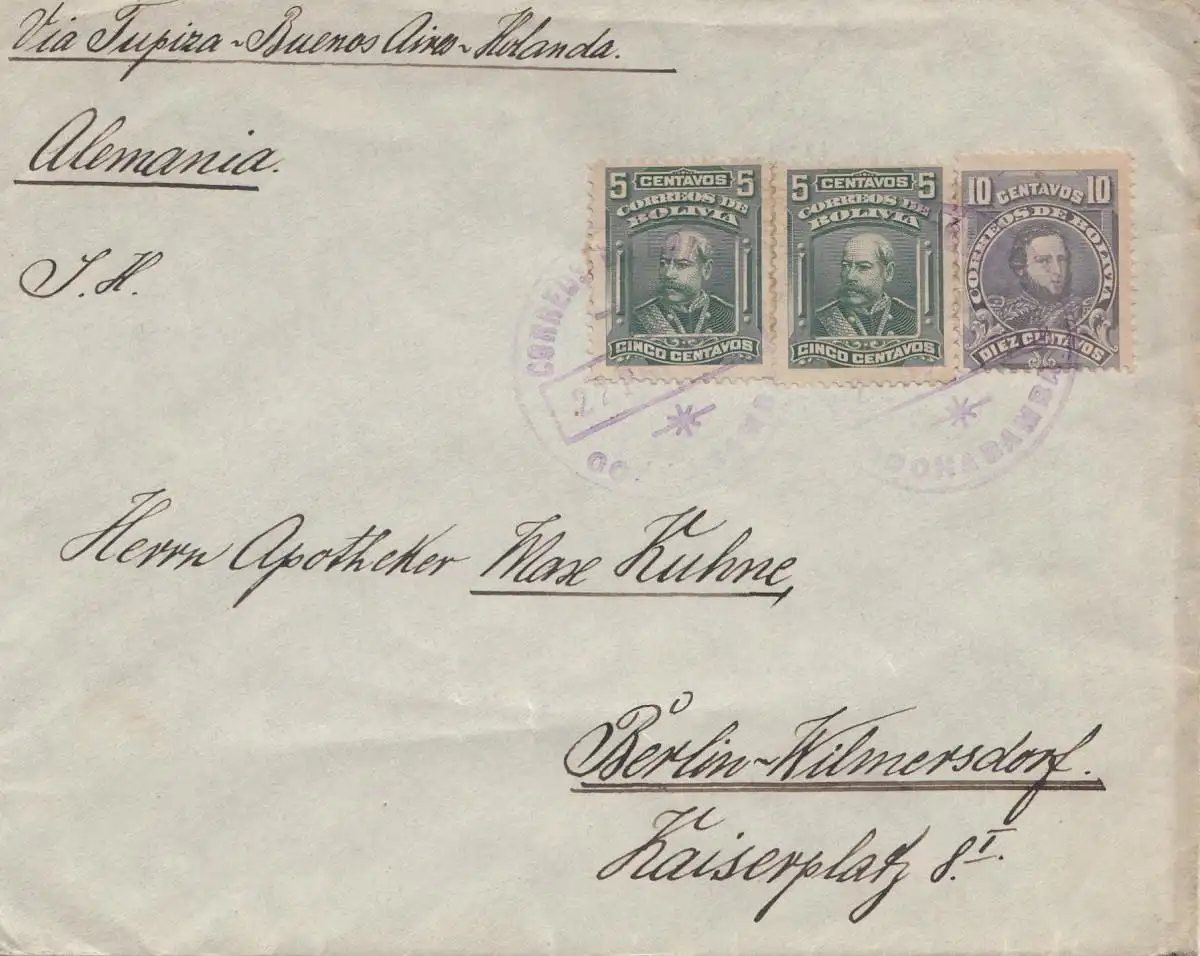 Via Tupiza - Buenos Aires - Holanda.
Alemania.
S. H.
5 CENTAVOS 5
CORREOS DE
BOLIVIA
CINCO CENTAVOS
5 CENTAVOS 5
CORREOS DE
BOLIVIA
CINCO CENTAVOS
10 CENTAVOS 10
CORREOS DE BOLIVIA
DIEZ CENTAVOS
Herrn Apotheker Max Kuhne,
Berlin-Wilmersdorf.
Kaiserplatz 8.I.